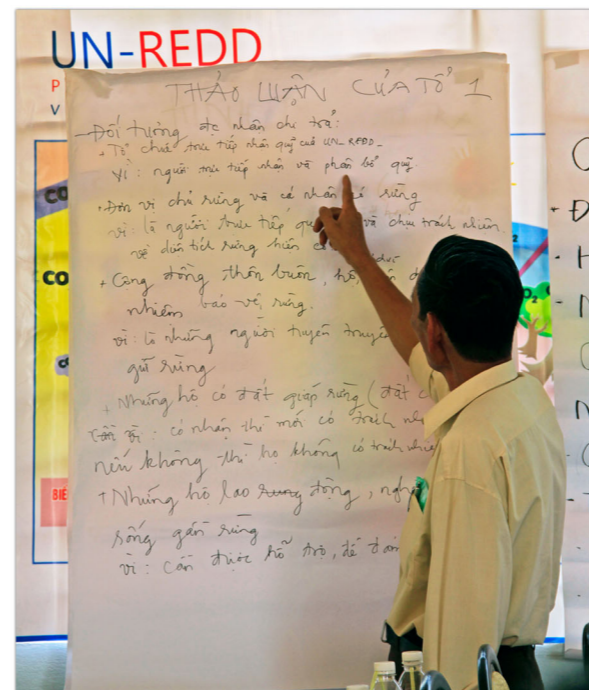 UN-REDD
P
V
THẢO LUẬN CỦA TỔ 1
- Đối tượng đc nhận chi trả:
+ Tổ chức trực tiếp nhận quỹ của UN-REDD-
Vì: người trực tiếp nhận và phân bổ quỹ.
+ Đơn vị chủ rừng và cá nhân có rừng
vì: là người trực tiếp và chịu trách nhiệm
về diện tích rừng hiện
+ Cộng đồng thôn buôn, hộ,
nhiệm bảo vệ rừng.
vì: là những người tuyên truyền
giữ rừng
+ Những hộ có đất giáp rừng (đất
vì: có nhận thì mới có trách
nếu không thì họ không có trách nhiệm
+ Những hộ lao động,
sống gần rừng
vì: Cần được hỗ trợ, để
CO
CO
O2
BIẾ